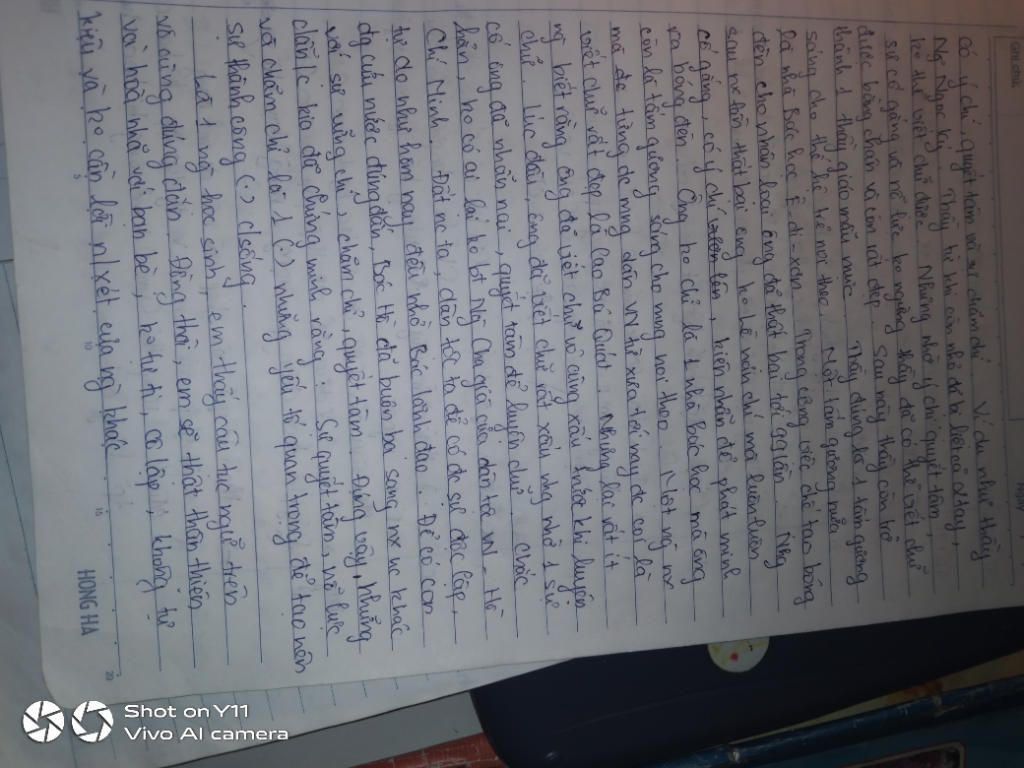 có ý chí, quyết tâm và sự chăm chỉ. Ví dụ như thầy
Ng Ngọc Ký. Thầy hồi bé còn nhỏ đã bị liệt cả 2 tay,
ko thể viết chữ đc. Nhưng nhờ ý chí quyết tâm,
sự cố gắng và nỗ lực ko ngừng thầy đã có thể viết chữ
được bằng chân và còn rất đẹp. Sau này thầy còn trở
thành 1 thầy giáo mẫu mực. Thầy đúng là 1 tấm gương
sáng cho thế hệ trẻ noi theo. Một tấm gương nữa
là nhà Bác học Ê-đi-xơn. Trong công việc chế tạo bóng
đèn cho nhân loại ông đã thất bại tới lần. Nhg
sau mỗi lần thất bại ông ko hề nản chí mà luôn luôn
cố gắng, có ý chí, kiên nhẫn để phát minh
ra bóng đèn. Ông ko chỉ là 1 nhà bác học mà ông
còn là tấm gương sáng cho mng noi theo. Một ng nx
mà đc từng đc mng dân VN từ xưa tới nay đc coi là
viết chữ rất đẹp là Cao Bá Quát. Nhưng lại rất ít
ng biết rằng ông đã viết chữ vô cùng xấu trước khi luyện
chữ. Lúc đầu, ông đã viết chữ rất xấu nhg nhờ 1 sự
cố ông đã nhẫn nại, quyết tâm để luyện chữ. Chắc
hẳn, ko có ai lại ko bt Ng Cha già của dân tộc VN - Hồ
Chí Minh. Đất nc ta, dân tộc ta để có đc sự độc lập,
tự do như hôm nay đều nhờ Bác lãnh đạo. Để có con
đg cứu nước đúng đắn, Bác Hồ đã buôn ba sang nc khác
với sự vững chí, chăm chỉ, quyết tâm. Đúng vậy, những
chiếc kia đã chứng minh rằng: Sự quyết tâm, nỗ lực
và chăm chỉ là 1 (.) những yếu tố quan trọng để tạo nên
sự thành công (.) csống.
Là 1 ng học sinh, em thấy câu tục ngữ trên
vô cùng đúng đắn. Đồng thời, em sẽ thật thân thiện
và hoà nhã với bạn bè, ko tự ti, cô lập, không tự
kiêu và ko cần lời n/xét của ng khác
HONG HA
5
10
15
20
Shot on Y11
Vivo AI camera